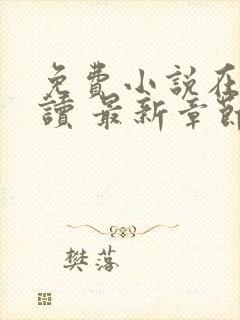 免費小說在
讀 最新章節
樊落